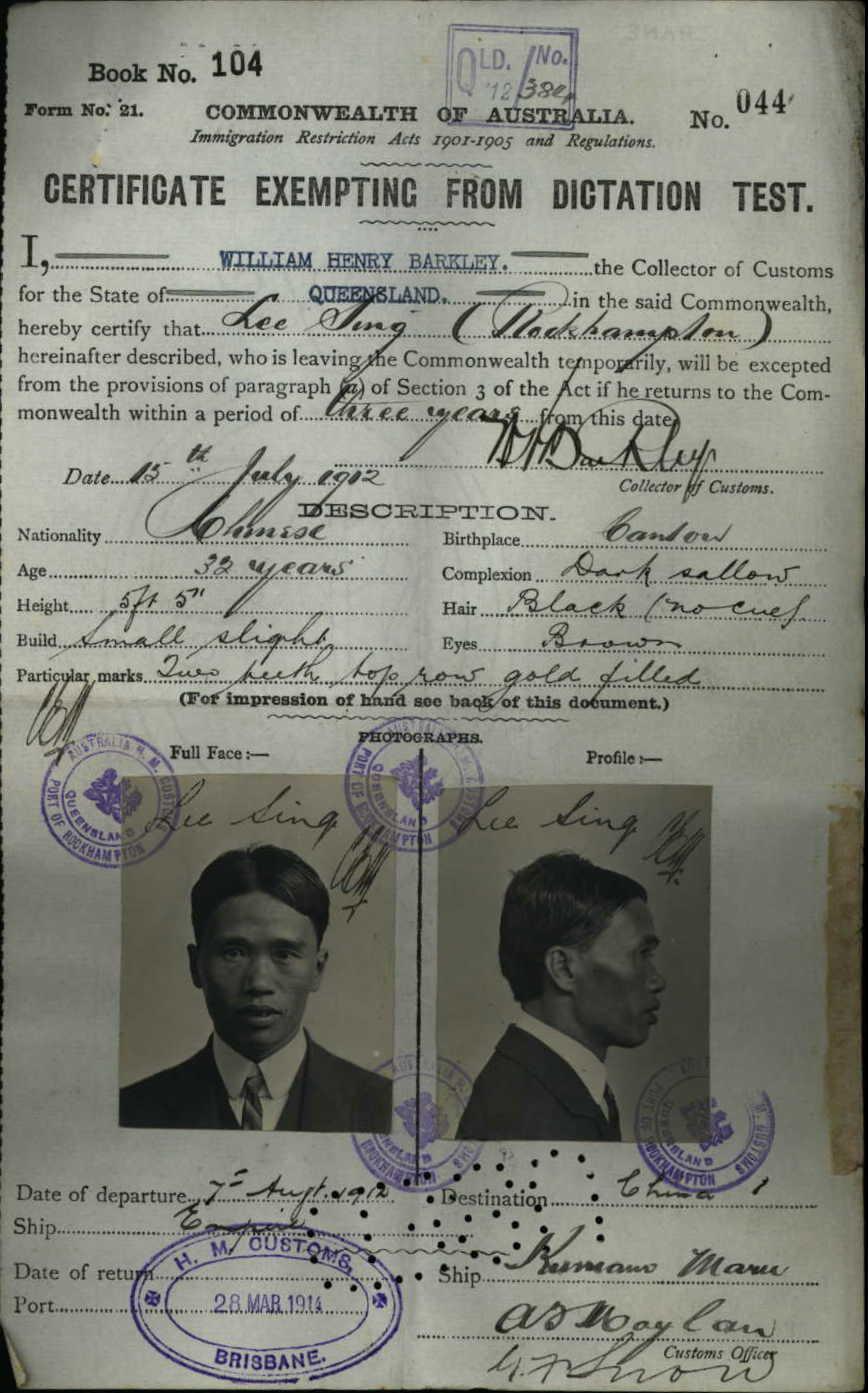 Book No. 104
QLD. No.
'12/38
Form No. 21.
COMMONWEALTH OF AUSTRALIA.
No. 044
Immigration Restriction Acts 1901-1905 and Regulations.
CERTIFICATE EXEMPTING FROM DICTATION TEST.
I, WILLIAM HENRY BARKLEY. the Collector of Customs
for the State of QUEENSLAND. in the said Commonwealth,
hereby certify that Lee Sing (Rockhampton)
hereinafter described, who is leaving the Commonwealth temporarily, will be excepted
from the provisions of paragraph (a) of Section 3 of the Act if he returns to the Com-
monwealth within a period of three years from this date
WHBarkley
Date 15th July 1912
Collector of Customs.
DESCRIPTION.
Nationality Chinese Birthplace Canton
Age 32 years Complexion Dark sallow
Height 5ft 5" Hair Black (no cue)
Build Small slight Eyes Brown
Particular marks Two teeth top row gold filled
(For impression of hand see back of this document.)
PHOTOGRAPHS.
Full Face :— Profile :—
AUSTRALIA H. M. CUSTOMS
PORT OF ROCKHAMPTON
QUEENSLAND
AUSTRALIA H. M. CUSTOMS
PORT OF ROCKHAMPTON
QUEENSLAND
Lee Sing
Lee Sing
AUSTRALIA H. M. CUSTOMS
ROCKHAMPTON
QUEENSLAND
PORT OF ROCKHAMPTON
H. M. CUSTOMS
QUEENSLAND
Date of departure 7th Augt. 1912 Destination China
Ship Empire
Date of return Ship Kumano Maru
Port
H. M. CUSTOMS,
28 MAR 1914
BRISBANE.
Customs Officer